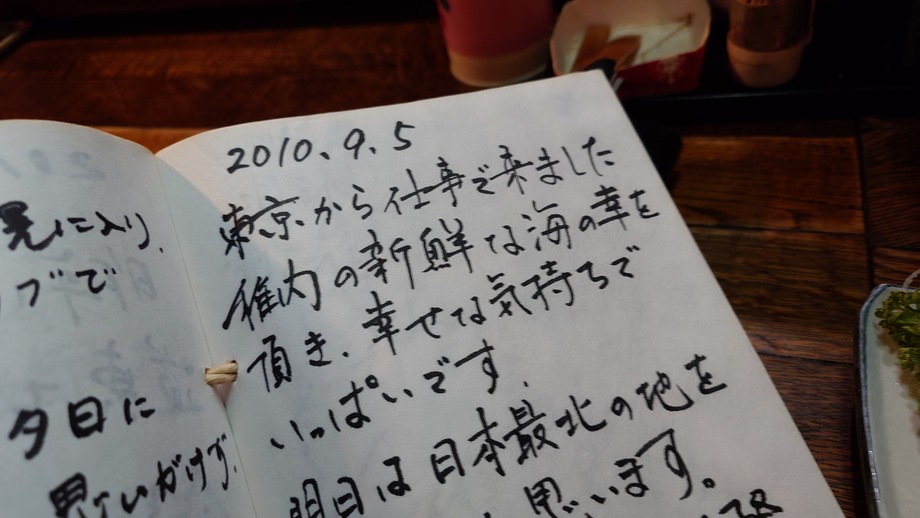 に入り、
ブで
夕日に
思いがけず、
2010.9.5
東京から仕事で来ました
稚内の新鮮な海の幸を
頂き、幸せな気持ちで
いっぱいです。
明日は日本最北の地を
思います。